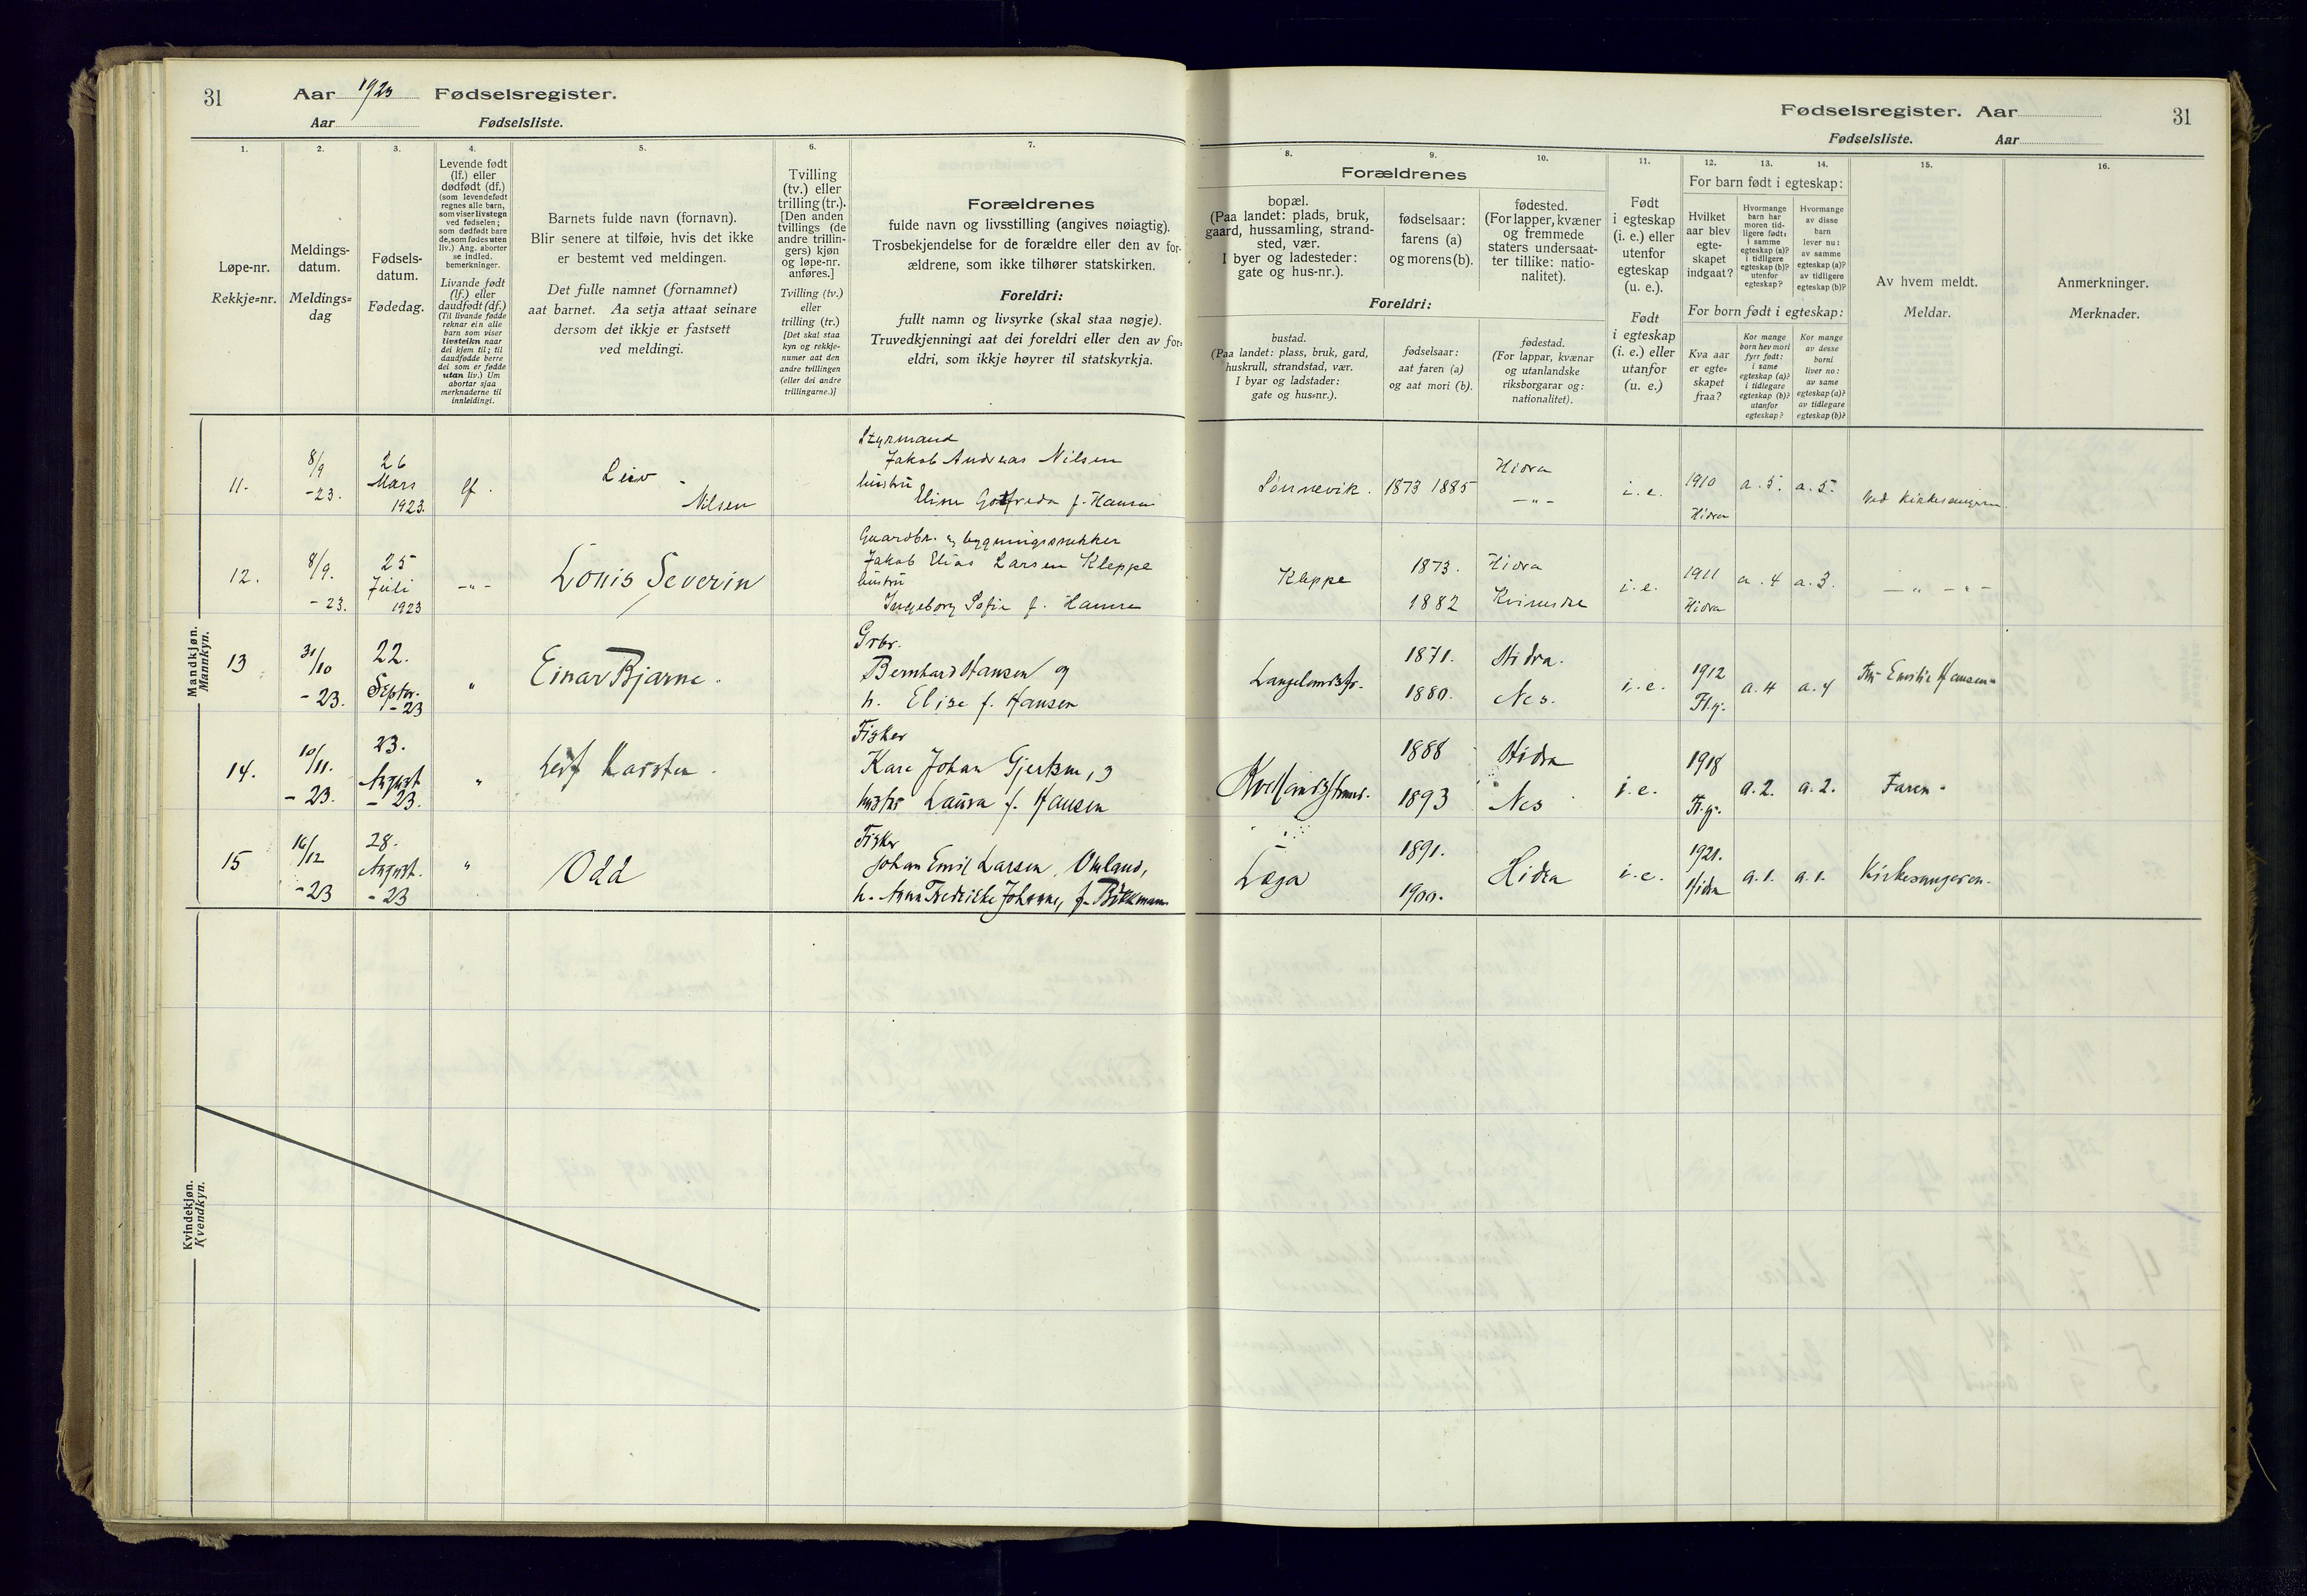 31
Aar 1923 Fødselsregister.
Aar Fødselsliste.
1. 2. 3. 4. 5. 6. 7.
Løpe-nr.
Rekkje-nr.
Meldings-
datum.
Meldings-
dag
Fødsels-
datum.
Fødedag.
Levende født
(lf.) eller
dødfødt (df.)
(som levendefødt
regnes alle barn,
som viser livstegn
ved fødselen;
som dødfødt bare
de, som fødes uten
liv.) Ang. aborter
se indled.
bemerkninger.
Livande født
(lf.) eller
daudfødt (df.)
(Til livande fødde
reknar ein alle
barn som viser
livsteikn naar
dei kjem til; til
daudfødde berre
dei som er fødde
utan liv.) Um
abortar sjaa
merknaderne til
innleidingi.
Barnets fulde navn (fornavn).
Blir senere at tilføie, hvis det ikke
er bestemt ved meldingen.
Det fulle namnet (fornamnet)
aat barnet. Aa setja attaat seinare
dersom det ikkje er fastsett
ved meldingi.
Tvilling
(tv.) eller
trilling (tr.).
[Den anden
tvillings (de
andre trillin-
gers) kjøn
og løpe-nr.
anføres.]
Tvilling (tv.)
eller
trilling (tr.)
[Det skal staa
kyn og rekkje-
numer aat den
andre tvillingen
(eller dei andre
trillingarne.)]
Forældrenes
fulde navn og livsstilling (angives nøiagtig).
Trosbekjendelse for de forældre eller den av for-
ældrene, som ikke tilhører statskirken.
Foreldri:
fullt namn og livsyrke (skal staa nøgje).
Truvedkjenningi aat dei foreldri eller den av for-
eldri, som ikkje høyrer til statskyrkja.
Fødselsregister. Aar 31
Fødselsliste. Aar
8. 9. 10. 11. 12. 13. 14. 15. 16.
Forældrenes
bopæl.
(Paa landet: plads, bruk,
gaard, hussamling, strand-
sted, vær.
I byer og ladesteder:
gate og hus-nr.).
fødselsaar:
farens (a)
og morens (b).
fødested.
(For lapper, kvæner
og fremmede
staters undersaat-
ter tillike: natio-
nalitet).
Foreldri:
bustad.
(Paa landet: plass, bruk, gard,
huskrull, strandstad, vær.
I byar og ladstader:
gate og hus-nr.).
fødselsaar:
aat faren (a)
og aat mori (b).
fødestad.
(For lappar, kvænar
og utanlandske
riksborgarar og:
nationalitet).
Født
i egteskap
(i. e.) eller
utenfor
egteskap
(u. e.).
Født
i egteskap
(i. e.) eller
utanfor
(u. e.)
For barn født i egteskap:
Hvilket
aar blev
egte-
skapet
indgaat?
Hvormange
barn har
moren tid-
ligere født:
i samme
egteskap (a)?
i tidligere
egteskap (b)?
utenfor
egteskap?
Hvormange
av disse
barn
lever nu:
av samme
egteskap (a)?
av tidligere
egteskap (b)?
For born født i egteskap:
Kva aar
er egte-
skapet
fraa?
Kor mange
born hev mori
fyrr født:
i same
egteskap (a)?
i tidlegare
egteskap (b)?
utanfor
egteskap?
Kor mange
av desse
borni
liver no:
av same
egteskap (a)?
av tidlegare
egteskap (b)?
Av hvem meldt.
Meldar.
Anmerkninger.
Merknader.
Mandkjøn.
Mannkyn.
11. 8/9 -23. 26 Mars 1923. lf. Leiv Nilsen
Styrmand
Jakob Andreas Nilsen
hustru
Eline Gotfreda f. Hansen
Sønnevik. 1873 1885 Hidra -"- i. e. 1910 Hidra a. 5. a. 5. Ved kirkesangeren.
12. 8/9. -23. 25 Juli 1923 -"- Louis Severin
Gaardbr. og bygningssnekker
Jakob Elias Larsen Kleppe
hustru
Ingeborg Sofie f. Hansen
Kleppe 1873. 1882 Hidra Kvinesdal i. e. 1911 Hidra a. 4 a. 3. -"- -"-
13 31/10 -23. 22. Septbr. -23 " Einar Bjarne.
Grbr.
Bernhard Hansen og
h. Elise f. Hansen
1871. 1880. Hidra. Nes. i. e. 1912 Fl.g. a. 4 a. 4 Emilie Hansen
14. 10/11. -23. 23. August -23. " Leif Karsten.
Fisker
Kare Johan Gjertsen, og
hustru Laura f. Hansen
1888 1893 Hidra Nes i. e. 1918 Fl.g. a. 2. a. 2. Faren.
15 16/12 -23 28. August. -23 " Odd
Fisker
Johan Emil Larsen Omland,
h. Anna Fredrikke Johanne, f. Birkeman
Løga 1891. 1900. Hidra i. e. 1921. Hidra a. 1. a. 1. Kirkesangeren.
Kvindekjøn.
Kvendkyn.